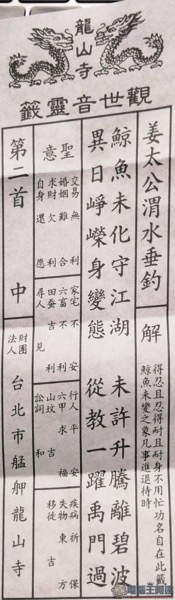 龍山寺
觀世音靈籤
姜太公渭水垂釣
解
得忍且忍得耐且耐身不用忙功名自在此籤
鯨魚未變之象凡事進退待時
鯨魚未化守江湖 未許升騰離碧波
異日崢嶸身變態 從教一躍禹門過
聖意
交易無利 家宅不安 行人平安 疾病祈保
婚姻難合 六畜不利 六甲求福 失物東方
求財欠利 田蠶吉利 山墳吉 移徙吉
自身還愿 尋人見 訟詞和
第二首 中
財團法人 台北市艋舺龍山寺
電腦王阿達